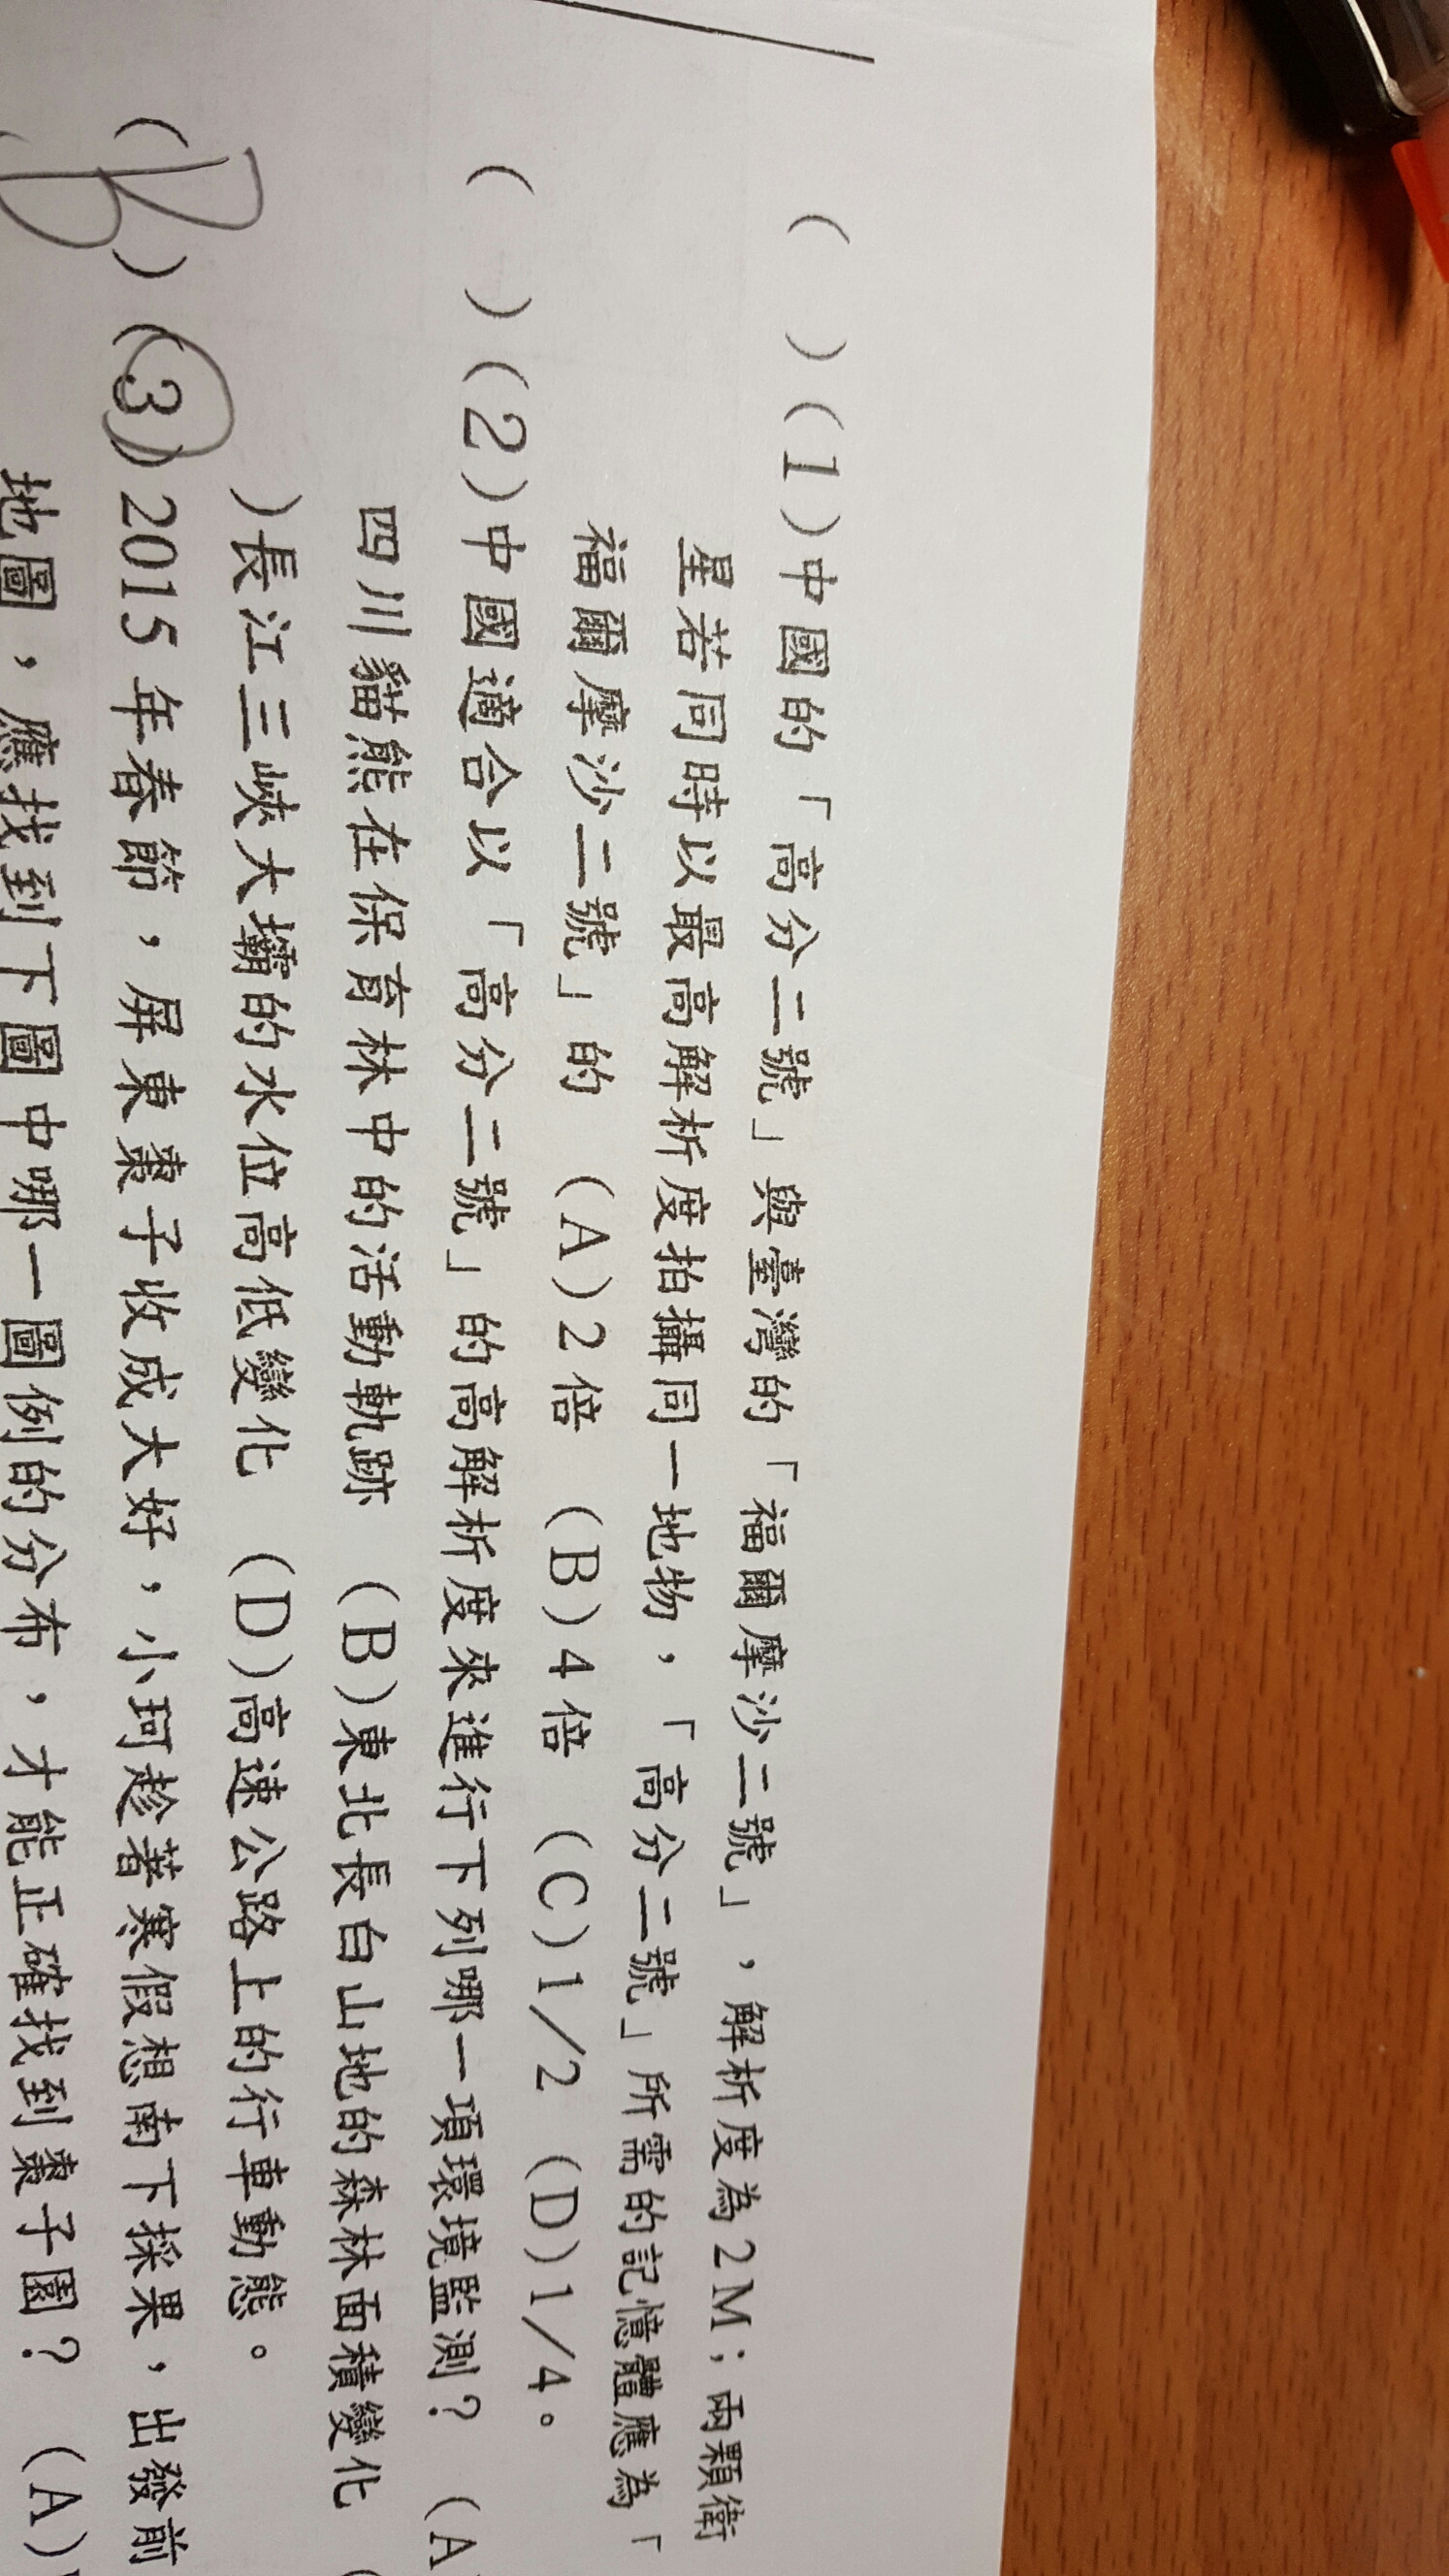 ( )(1)中國的「高分二號」與臺灣的「福爾摩沙二號」，解析度為2M；兩顆衛
星若同時以最高解析度拍攝同一地物，「高分二號」所需的記憶體應為「
福爾摩沙二號」的 (A)2倍 (B)4倍 (C)1/2 (D)1/4。
( )(2)中國適合以「高分二號」的高解析度來進行下列哪一項環境監測？ (A
四川貓熊在保育林中的活動軌跡 (B)東北長白山地的森林面積變化 (
)長江三峽大壩的水位高低變化 (D)高速公路上的行車動態。
(B)(3)2015年春節，屏東棗子收成大好，小珂趁著寒假想南下採果，出發前
(B 地圖，應找到下圖中哪一圖例的分布，才能正確找到棗子園？ (A)